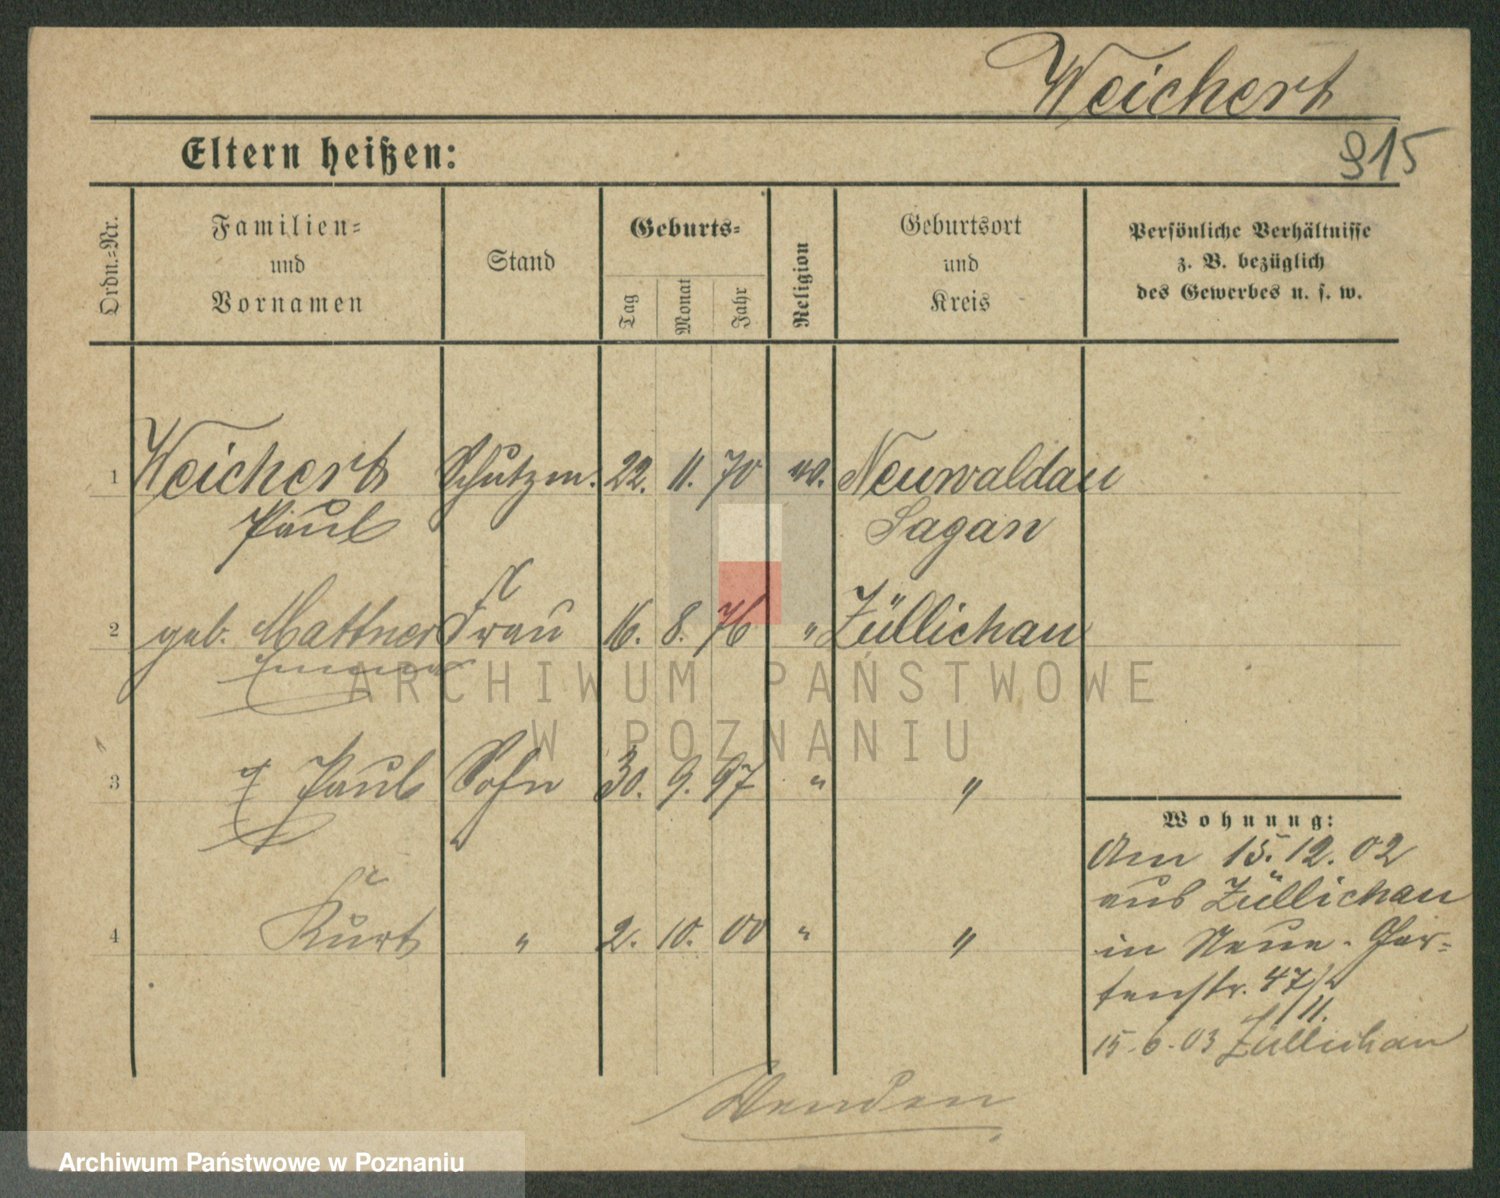 Weichert
915
Eltern heißen:
Ordn.-Nr.
Familien-
und
Vornamen
Stand
Geburts-
Tag
Monat
Jahr
Religion
Geburtsort
und
Kreis
Persönliche Verhältnisse
z. B. bezüglich
des Gewerbes u. s. w.
1 Weichert Schutzm. 22. 11. 70 Neuwaldau
Paul Sagan
2 geb. Mattner Frau 16. 8. 76 " Züllichau
Emma
ARCHIWUM PAŃSTWOWE
W POZNANIU
3 Paul Sohn 30. 9. 97 " "
4 Kurt " 2. 10. 00 " "
Wohnung:
Am 15.12.02
aus Züllichau
in Neue-Gar-
tenstr. 47/
11.
15.6.03 Züllichau
Wenden
Archiwum Państwowe w Poznaniu